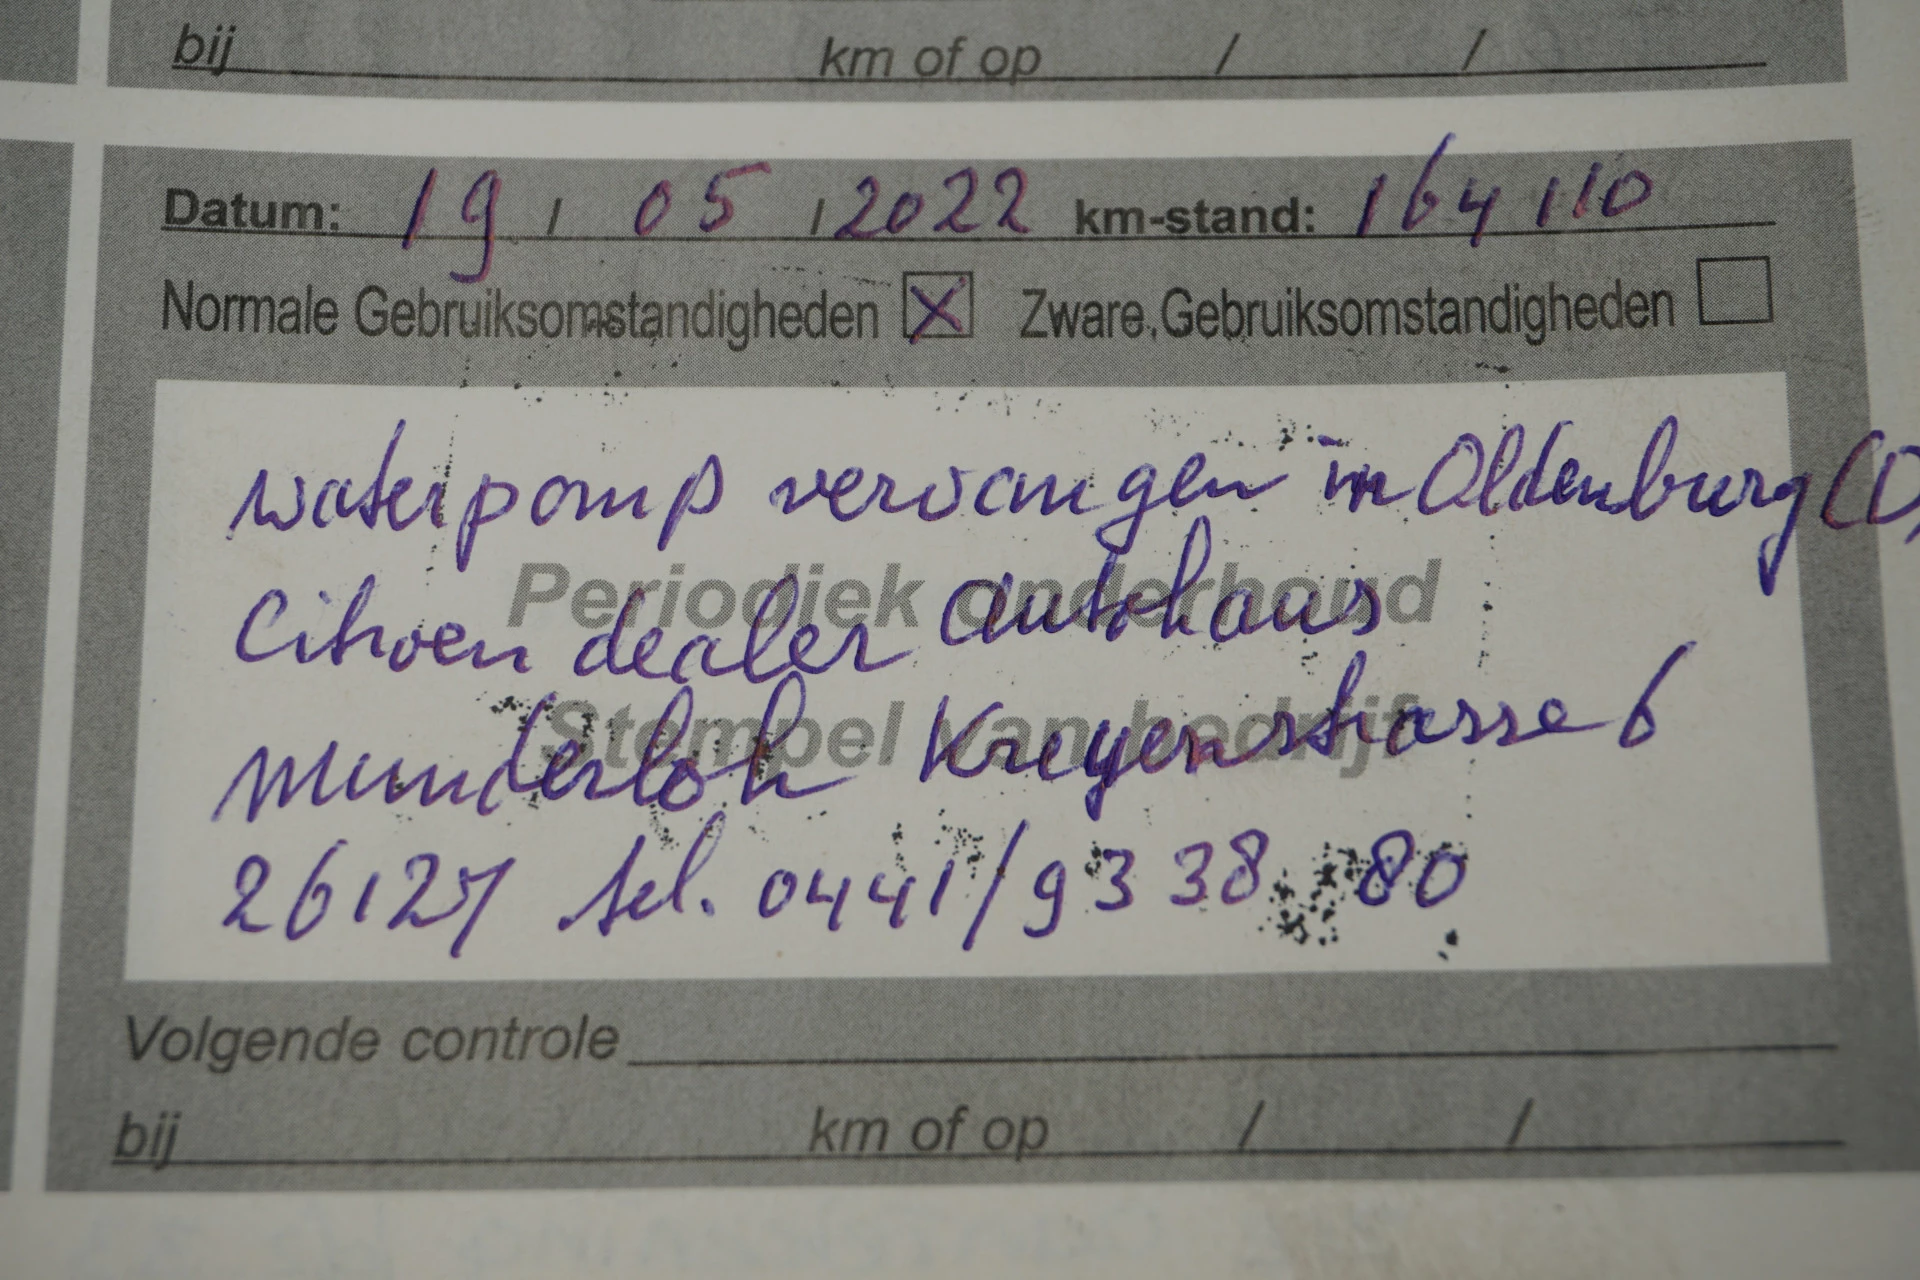 bij km of op / /
Datum: 19 / 05 / 2022 km-stand: 164110
Normale Gebruiksomstandigheden X Zware Gebruiksomstandigheden
waterpomp vervangen in Oldenburg (D)
Periodiek onderhoud
Citroen dealer Autohaus
Stempel van bedrijf
Munderloh Kreyenstrasse 6
26127 tel. 0441/9338 80
Volgende controle
bij km of op / /